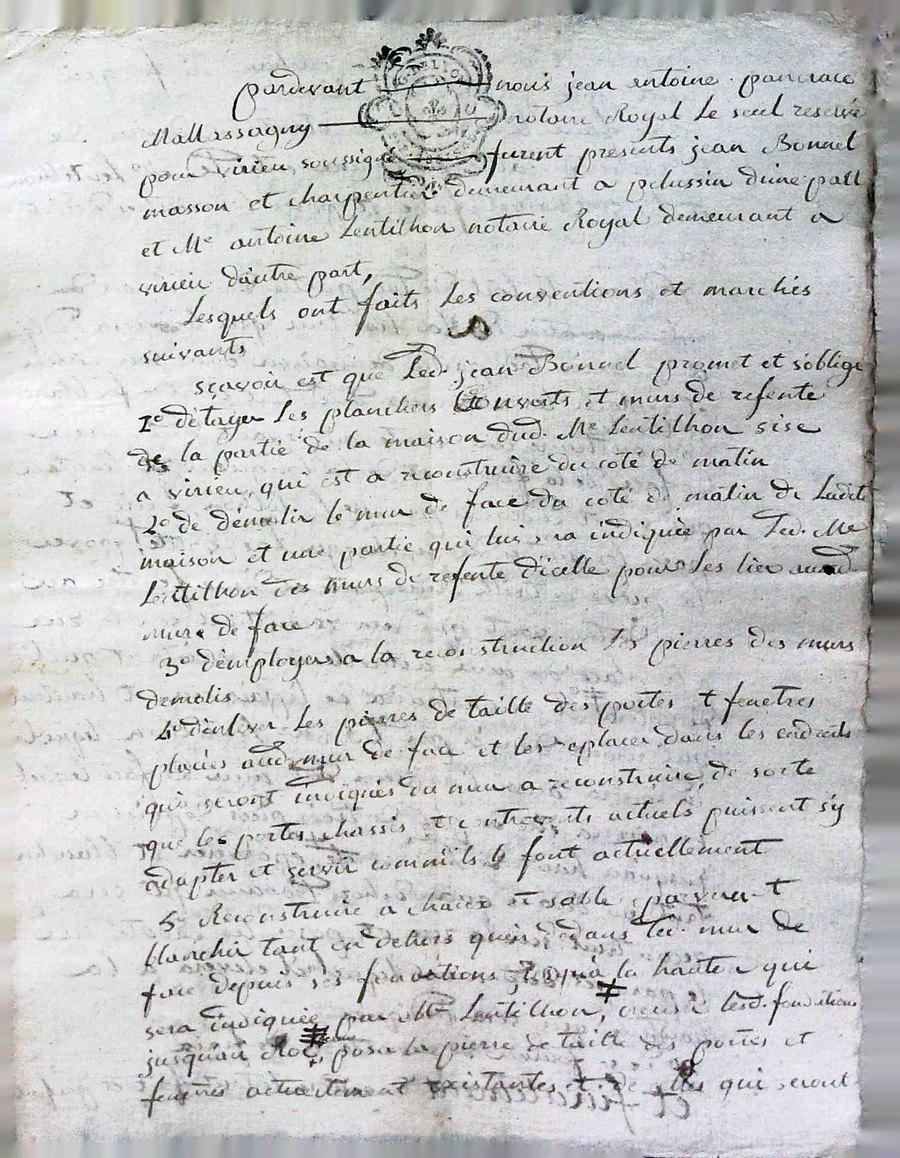 pardevant nous jean antoine pancrace
Mallassagny notaire Royal Le seul reservé
pour virieu soussigné furent presents jean Bonnel
masson et charpentier demeurant a pelussin d'une part
et Me antoine Lentilhon notaire Royal demeurant a
virieu d'autre part,
Lesquels ont faits Les conventions et marchés
suivants
sçavoir est que Led. jean Bonnel promet et s'oblige
1° d'etayer Les planchers couverts et murs de refente
de la partie de la maison dud. Me Lentilhon sise
a virieu, qui est a reconstruire du coté de matin
2° de démolir le mur de face du coté de matin de Ladite
maison et une partie qui lui sera indiquée par Led. Me
Lentilhon des murs de refente d'icelle pour les lier aud.
mur de face
3° d'employer a la reconstruction Les pierres des murs
demolis
4° d'enlever Les pierres de taille des portes et fenetres
placées aud. mur de face et les replacer dans les endroits
qui seront indiqués du mur a reconstruire, de sorte
que les portes chassis et contrevents actuels puissent s'y
adapter et servir comm'ils le font actuellement
5° Reconstruire a chaux et sable et
blanchir tant en dehors qu'en dedans led. mur de
face depuis ses fondations jusqu'à la hauteur qui
sera indiquée par Me Lentilhon, creuser lesd. fonditions
jusqu'au Roc, poser la pierre de taille des portes et
fenetres actuellement existantes et de celles qui seront